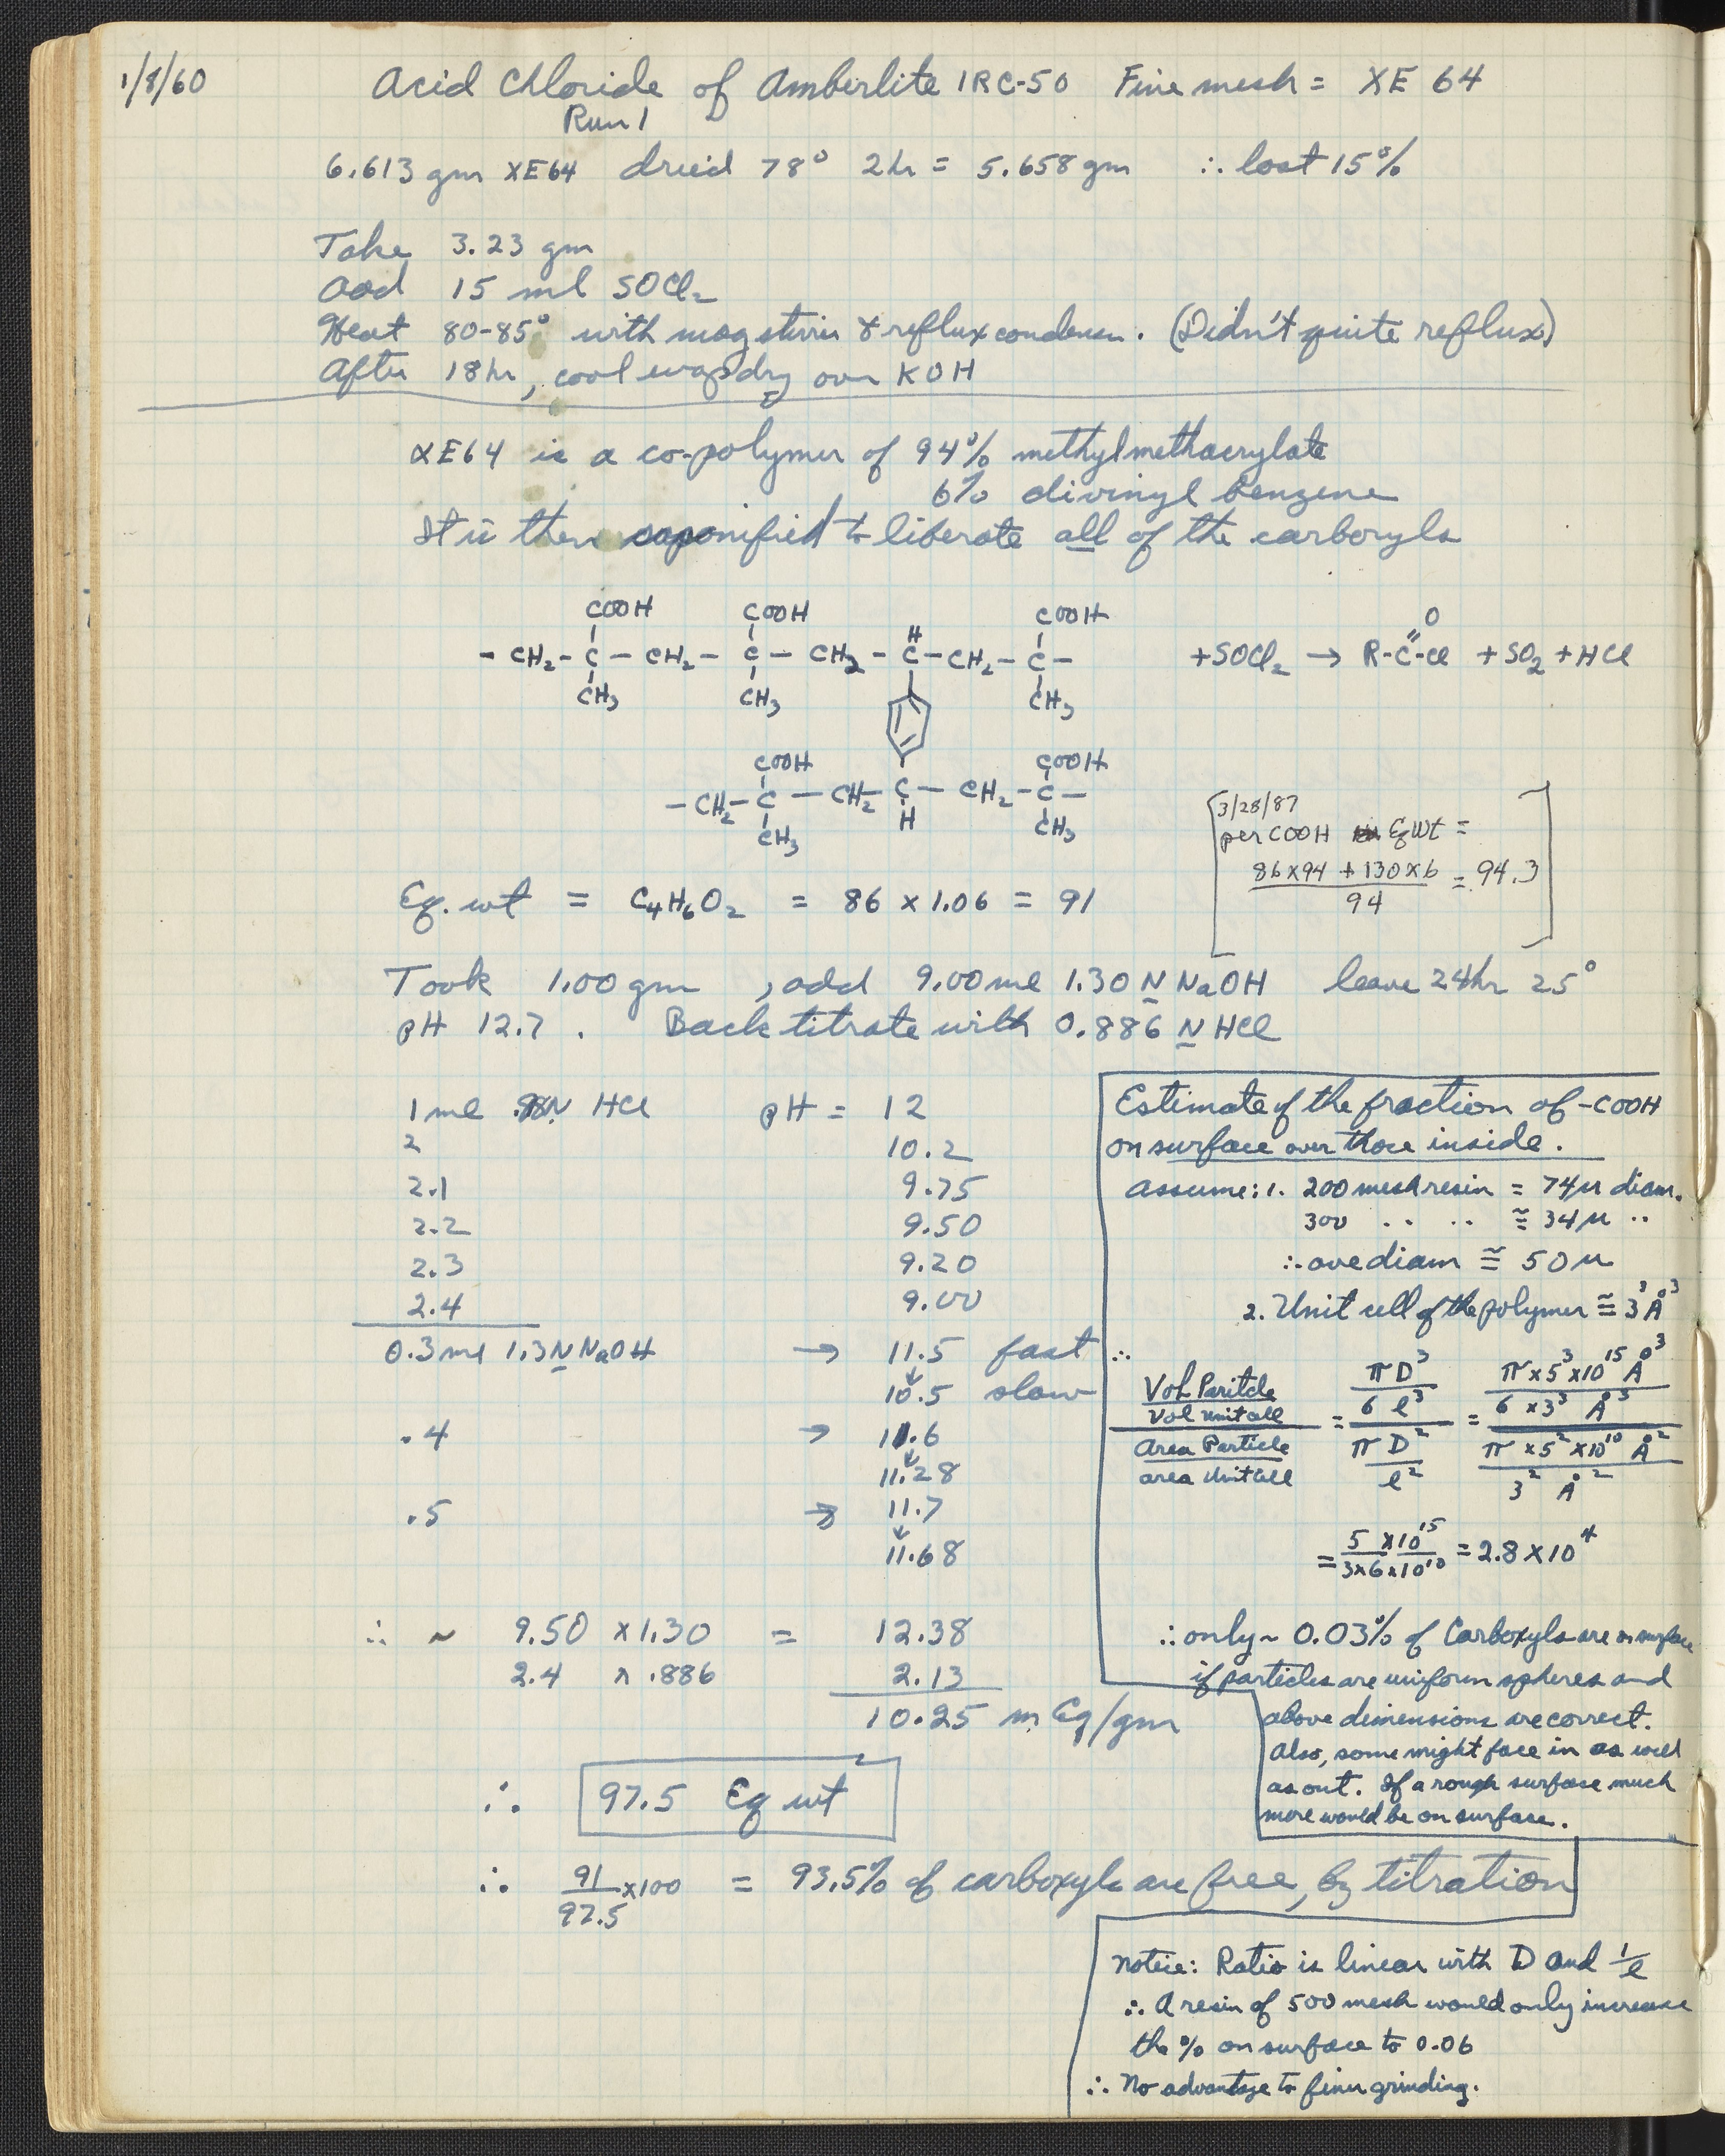 1/8/60 Acid Chloride of Amberlite IRC-50 Fine mesh = XE 64
Run 1
6.613 gm XE64 dried 78° 2hr = 5.658 gm ∴ lost 15%
Take 3.23 gm
Add 15 ml SOCl₂
Heat 80-85° with mag stirrer & reflux condenser. (Didn't quite reflux)
After 18hr, cool evap dry over KOH
XE64 is a co-polymer of 94% methylmethacrylate
6% divinyl benzene
It is then saponified to liberate all of the carboxyls
COOH COOH COOH
- CH₂ - C - CH₂ - C - CH₂ - C - CH₂ - C - + SOCl₂ → R-C-Cl + SO₂ + HCl
H O
CH₃ CH₃ CH₃
COOH COOH
- CH₂ - C - CH₂ - C - CH₂ - C -
CH₃ H CH₃
[3/28/87
per COOH Eq Wt =
86x94 + 130x6 = 94.3
94 ]
Eq. wt = C₄H₆O₂ = 86 x 1.06 = 91
Took 1.00 gm , add 9.00 ml 1.30 N NaOH leave 24hr 25°
pH 12.7 . Back titrate with 0.886 N HCl
1 ml .88N HCl pH = 12
2 10.2
2.1 9.75
2.2 9.50
2.3 9.20
2.4 9.00
0.3 ml 1.3 N NaOH → 11.5 fast
10.5 slow
.4 → 11.6
11.28
.5 → 11.7
11.68
∴ ~ 9.50 x 1.30 = 12.38
2.4 x .886 2.13
10.25 mEq/gm
∴ 97.5 Eq wt
∴ 91 x100 = 93.5% of carboxyls are free, by titration
97.5
Estimate of the fraction of -COOH
on surface over those inside.
Assume: 1. 200 mesh resin = 74μ diam.
300 .. .. ≅ 34μ ..
∴ ave diam ≅ 50μ
2. Unit cell of the polymer ≅ 3³ Å³
∴
Vol Paritcle πD³ π x 5³ x 10¹⁵ Å³
Vol unit cell = 6 l³ = 6 x 3³ Å³
Area Particle πD² π x 5² x 10¹⁰ Å²
area Unit cell l² 3² Å²
= 5 x 10¹⁵ = 2.8 x 10⁴
3x6x10¹⁰
∴ only ~ 0.03% of Carboxyls are on surface
if particles are uniform spheres and
above dimensions are correct.
Also, some might face in as well
as out. If a rough surface much
more would be on surface.
Notice: Ratio is linear with D and 1/l
∴ A resin of 500 mesh would only increase
the % on surface to 0.06
∴ No advantage to finer grinding.